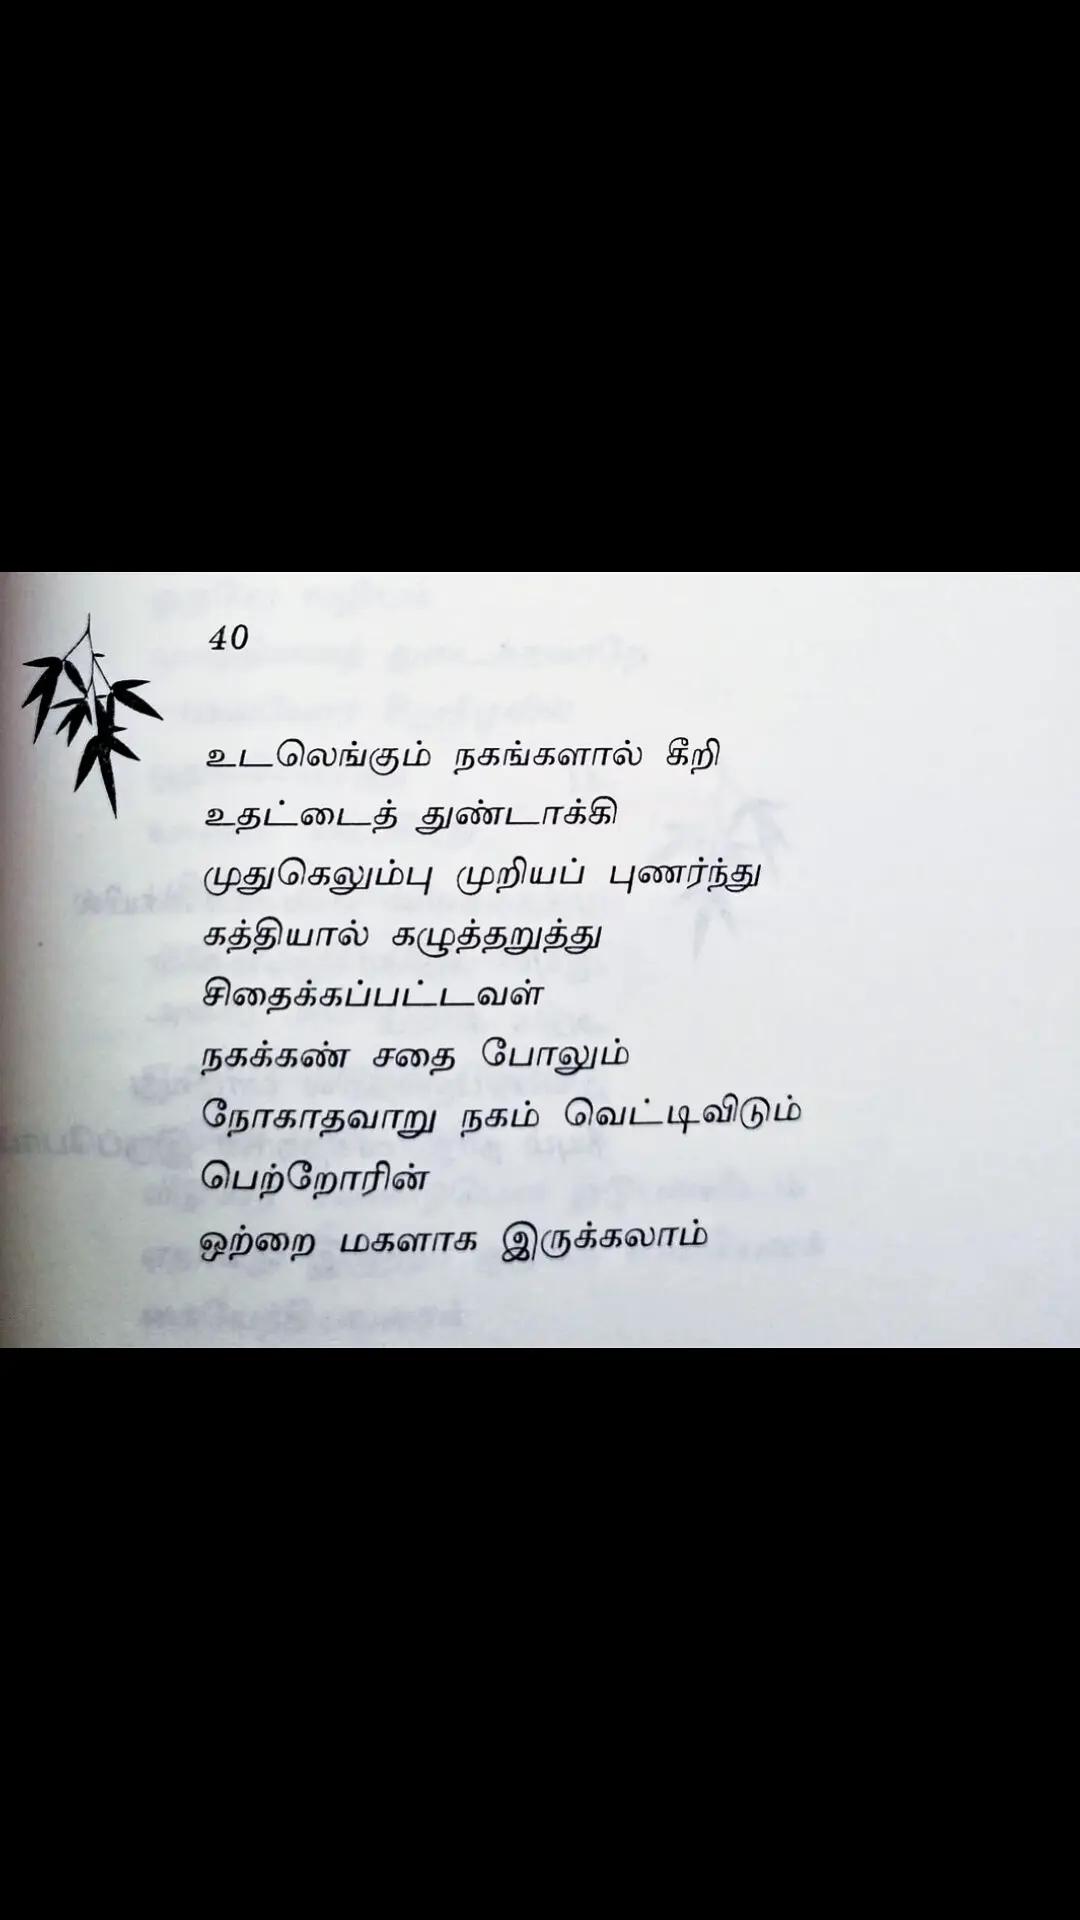 40
உடலெங்கும் நகங்களால் கீறி
உதட்டைத் துண்டாக்கி
முதுகெலும்பு முறியப் புணர்ந்து
கத்தியால் கழுத்தறுத்து
சிதைக்கப்பட்டவள்
நகக்கண் சதை போலும்
நோகாதவாறு நகம் வெட்டிவிடும்
பெற்றோரின்
ஒற்றை மகளாக இருக்கலாம்